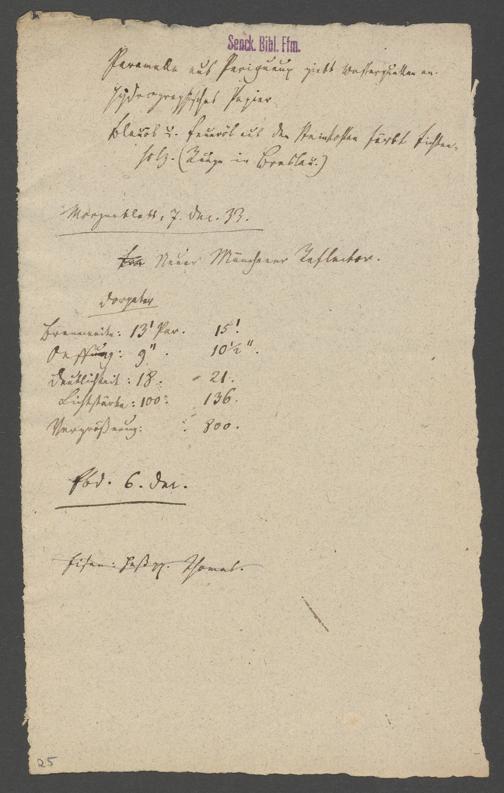 Senck. Bibl. Ffm.
Paramelle aus Perigueux giebt Wasserquellen an.
Hydrographisches Papier.
Blauöl u. aus den Steinkohlen färbt Fichten-
holz. (Runge in Breslau.)
Morgenblatt, 7. Dec. 33.
Neuer Münchener Reflector.
Dorpater
Brennweite: 13' Par. 15'.
Oeffnung: 9". 10½".
Deutlichkeit: 18. - 21.
Lichtstärke: 100. 136.
Vergrößerung: 800.
Ebd. 6. Dec.
Eisen:
25